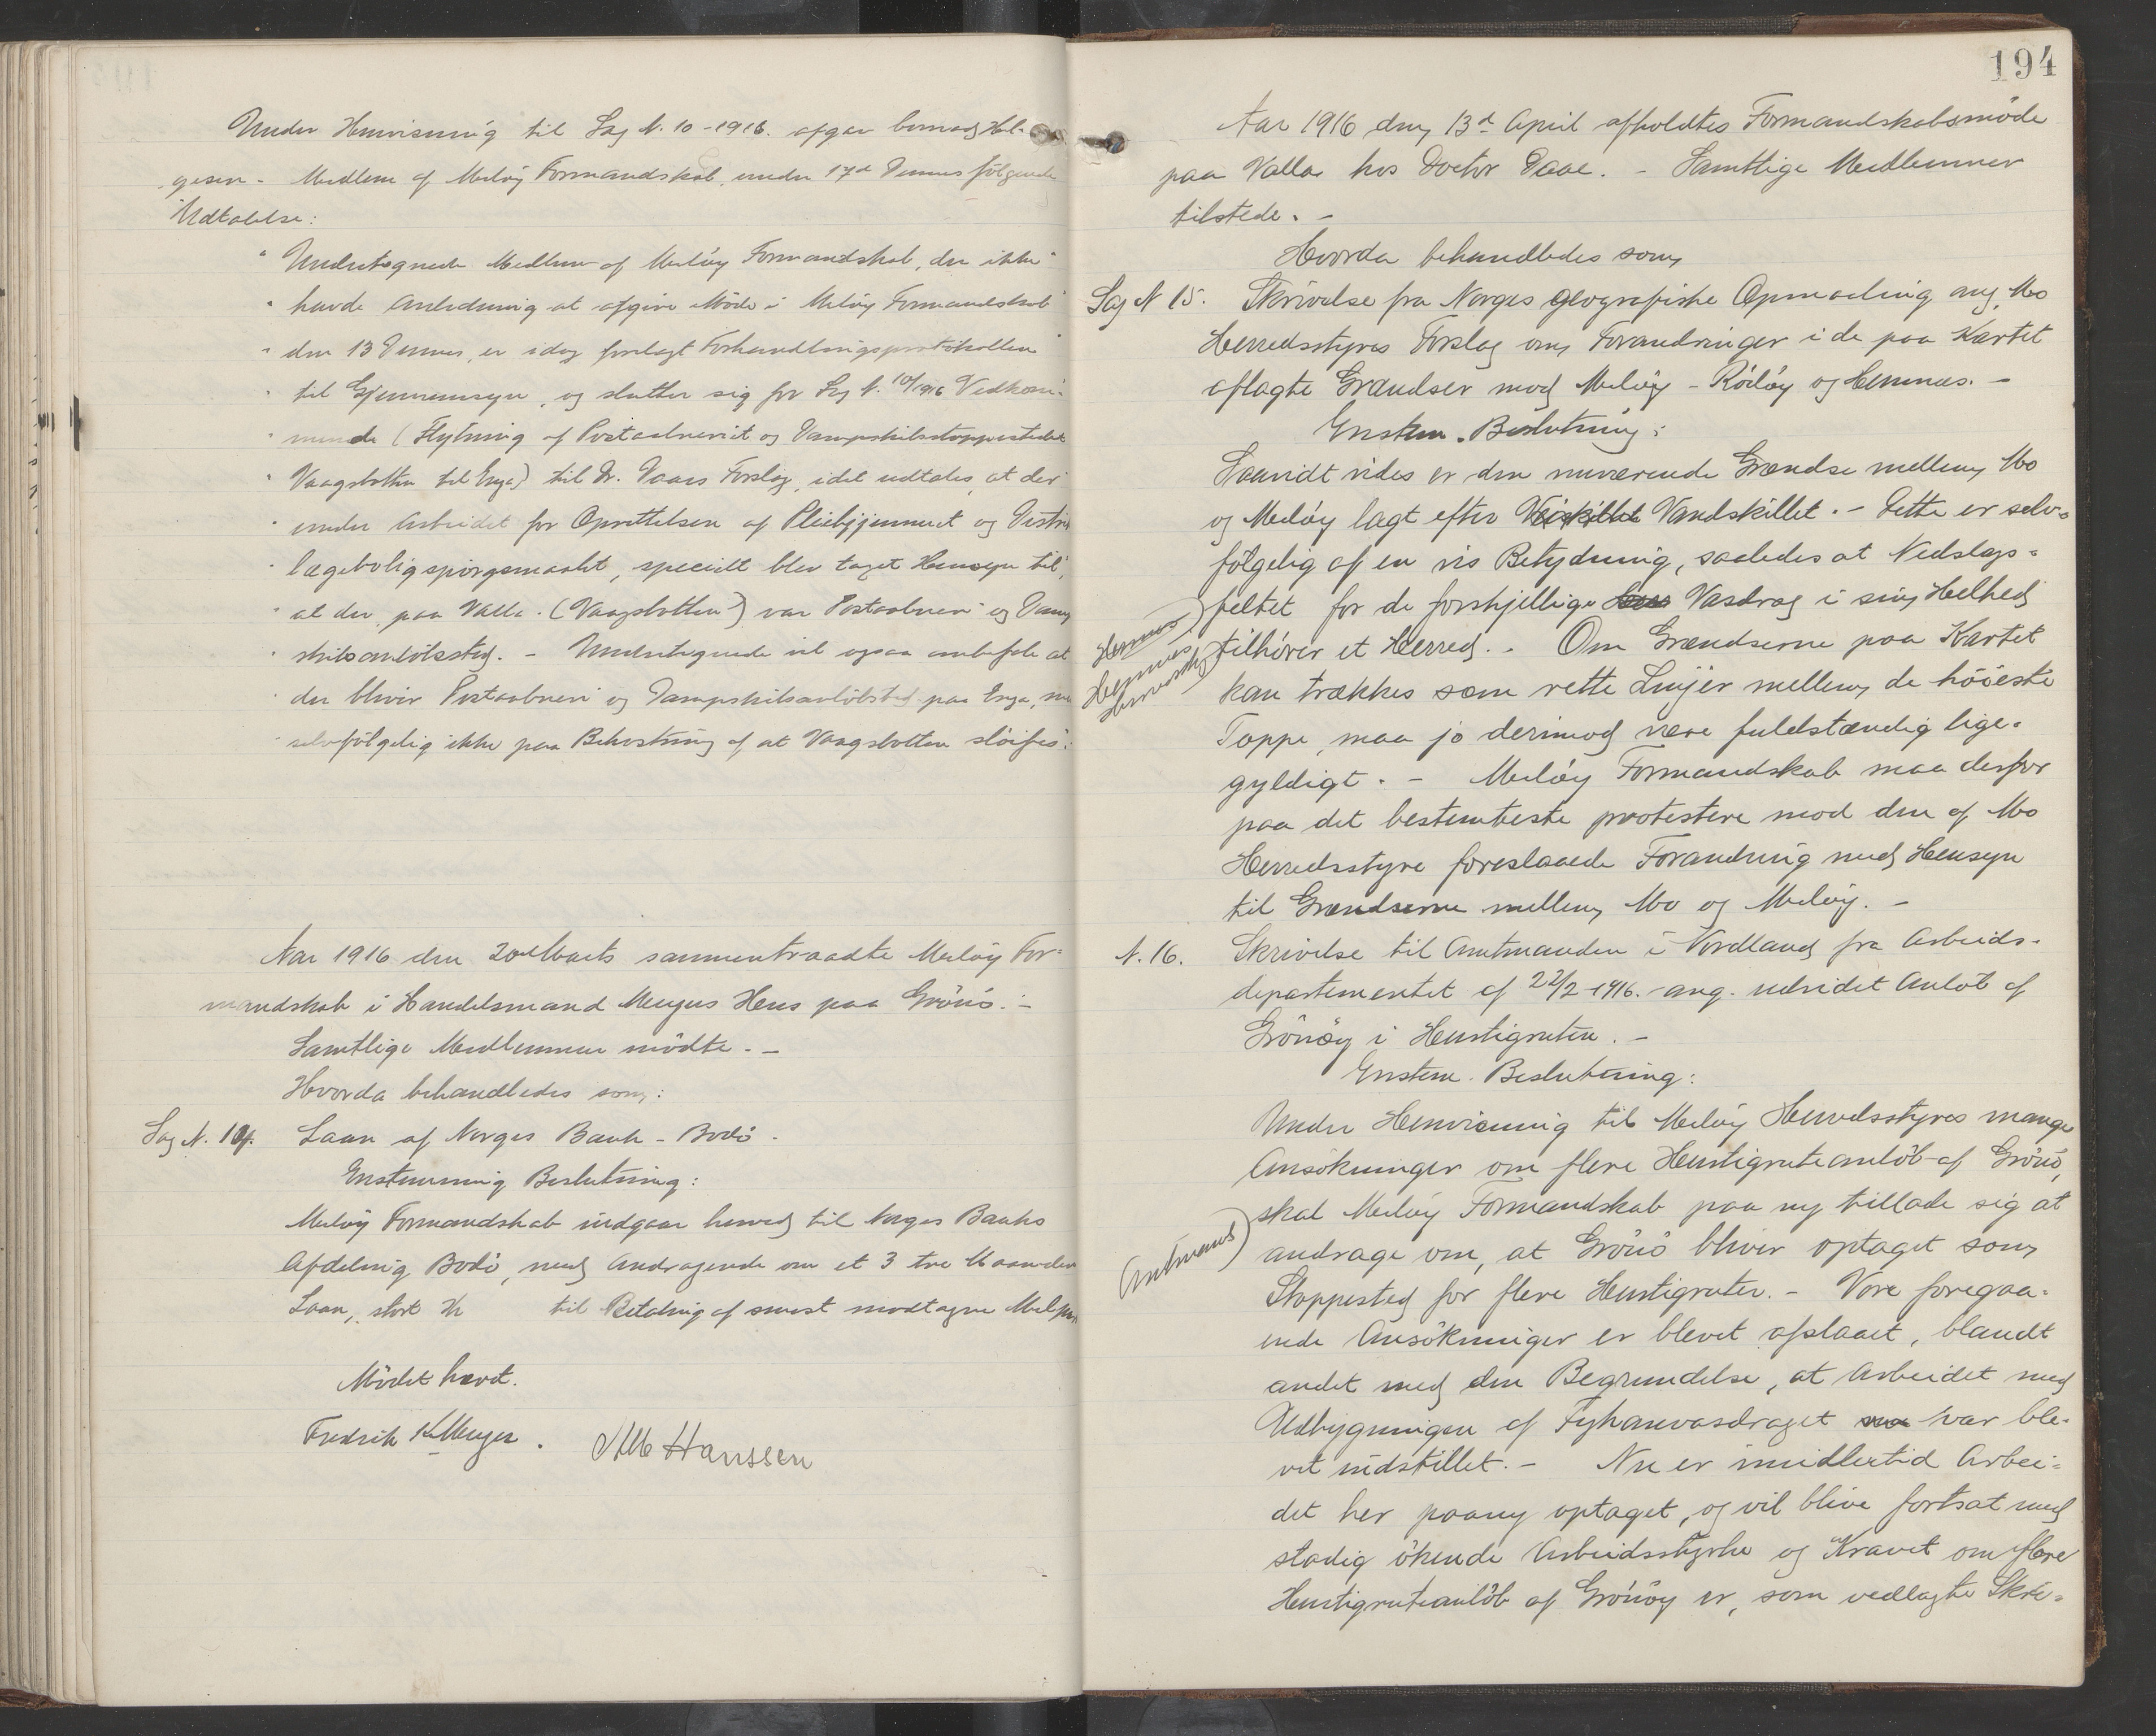 Under Henvisning til Sag N. 10-1916. afgav
gesen - Medlem af Meløy Formandskab, under 17d Dennes følgende
Udtalelse:
" Undertegnede Medlem af Meløy Formandskab, der ikke "
" havde Anledning at afgive Møde i Meløy Formandskab "
" den 13 Dennes, er idag forelagt Forhandlingsprotokollen "
" til Gjennemsyn, og slutter sig for Sag N. 10/1916 Vedkom-
" mende (Flytning af Postaabneriet og Dampskibsstoppestedet
" Vaagsbotten til Enga) til Dr. Daaes Forslag, idet udtales, at der
" under Arbeidet for Oprettelsen af Pleiehjemmet og Distrikts
" lægeboligspørgsmaalet, specielt blev taget Hensyn til,
" at der, paa Valla. (Vaagsbotten) var Postaabneri og Damp
" skibsanløbssted. - Undertegnede vil ogsaa anbefale at
der bliver Postaabneri og Dampskibsanløbsted paa Enga, men
selvfølgelig ikke paa Bekostning af at Vaagsbotten sløifes".
Aar 1916 den 20de Marts sammentraadte Meløy For=
mandskab i Handelsmand Meyers Hus paa Grønö. -
Samtlige Medlemmer mödte. -
Hvorda behandledes som:
Sag N. 14. Laan af Norges Bank - Bodö.
Enstemmig Beslutning:
Meløy Formandskab indgaar herved til Norges Banks
Afdeling Bodö, med Andragende om et 3 tre Maaneders
Laan, stort Kr til Betaling af senest modtagne Melparti
Mödet hævet.
Fredrik K Meyer. Hanssen
194
Aar 1916 den 13d April afholdtes Formandskabsmöde
paa Valla hos Doctor Daae. - Samtlige Medlemmer
tilstede. -
Hvorda behandledes som
Sag N 15. Skrivelse fra Norges geografiske Opmaaling ang. Mo
Herredsstyres Forslag om Forandringer i de paa Kartet
aflagte Grændser mod Meløy - Rödöy og Hemnæs. -
Enstem. Beslutning:
Saavidt vides er den nuværende Grændse mellem Mo
og Meløy lagt efter Veiskillet Vandskillet. - Dette er selv=
følgelig af en vis Betydning, saaledes at Nedslags=
feltet for de forskjellige Vasdrag i sin Helhed
tilhører et Herred. - Om Grændserne paa Kartet
Hemnes
kan trækkes som rette Linjer mellem de höieste
Toppe, maa jo derimod være fuldstændig lige=
gyldigt. - Meløy Formandskab maa derfor
paa det bestemteste protestere mod den af Mo
Herredsstyre foreslaaede Forandring med Hensyn
til Grændserne mellem Mo og Meløy. -
N. 16. Skrivelse til Amtmanden i Nordland fra Arbeids-
departementet af 22/2-1916. - ang. udvidet Anlöb af
Grönöy i Hurtigruten. -
Enstem. Beslutning:
Under Henvisning til Meløy Herredsstyres mange
Ansökninger om flere Hurtigruteanlöb af Grönö,
skal Meløy Formandskab paa ny tillade sig at
Amtmand) andrage om, at Grönö bliver optaget som
Stoppested for flere Hurtigruter. - Vore foregaa-
ende Ansökninger er blevet afslaaet, blandt
andet med den Begrundelse, at Arbeidet med
Udbygningen af Fykanvasdraget var ble-
vet indstillet. - Nu er imidlertid Arbei=
det her paany optaget, og vil blive fortsat med
stadig ökende Arbeidsstyrke og Kravet om flere
Hurtigruteanlöb af Grönöy er, som vedlagte Skri=